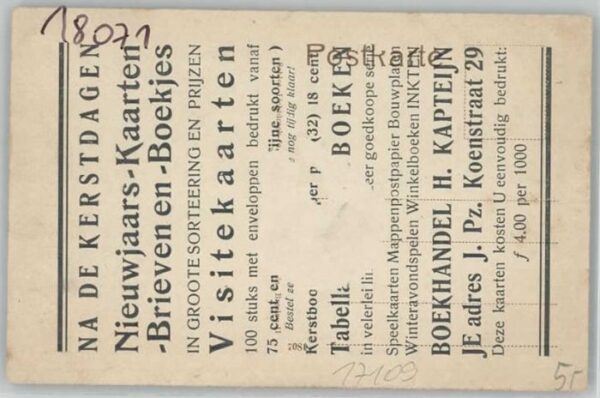 18071
Postkarte
NA DE KERSTDAGEN
Nieuwjaars-Kaarten
-Brieven en -Boekjes
IN GROOTE SORTEERING EN PRIJZEN
Visitekaarten
100 stuks met enveloppen bedrukt vanaf
75 cent en ijne soorten)
Bestel ze nog tijdig klaar!
Kerstboo per p (32) 18 cent
Tabell BOEKEN
in velerlei li eer goedkoope serie
Speelkaarten Mappenpostpapier Bouwplaten
Winteravondspelen Winkelboeken INKTEN
BOEKHANDEL H. KAPTEIJN
JE adres J. Pz. Koenstraat 29
Deze kaarten kosten U eenvoudig bedrukt:
ƒ 4.00 per 1000
17109